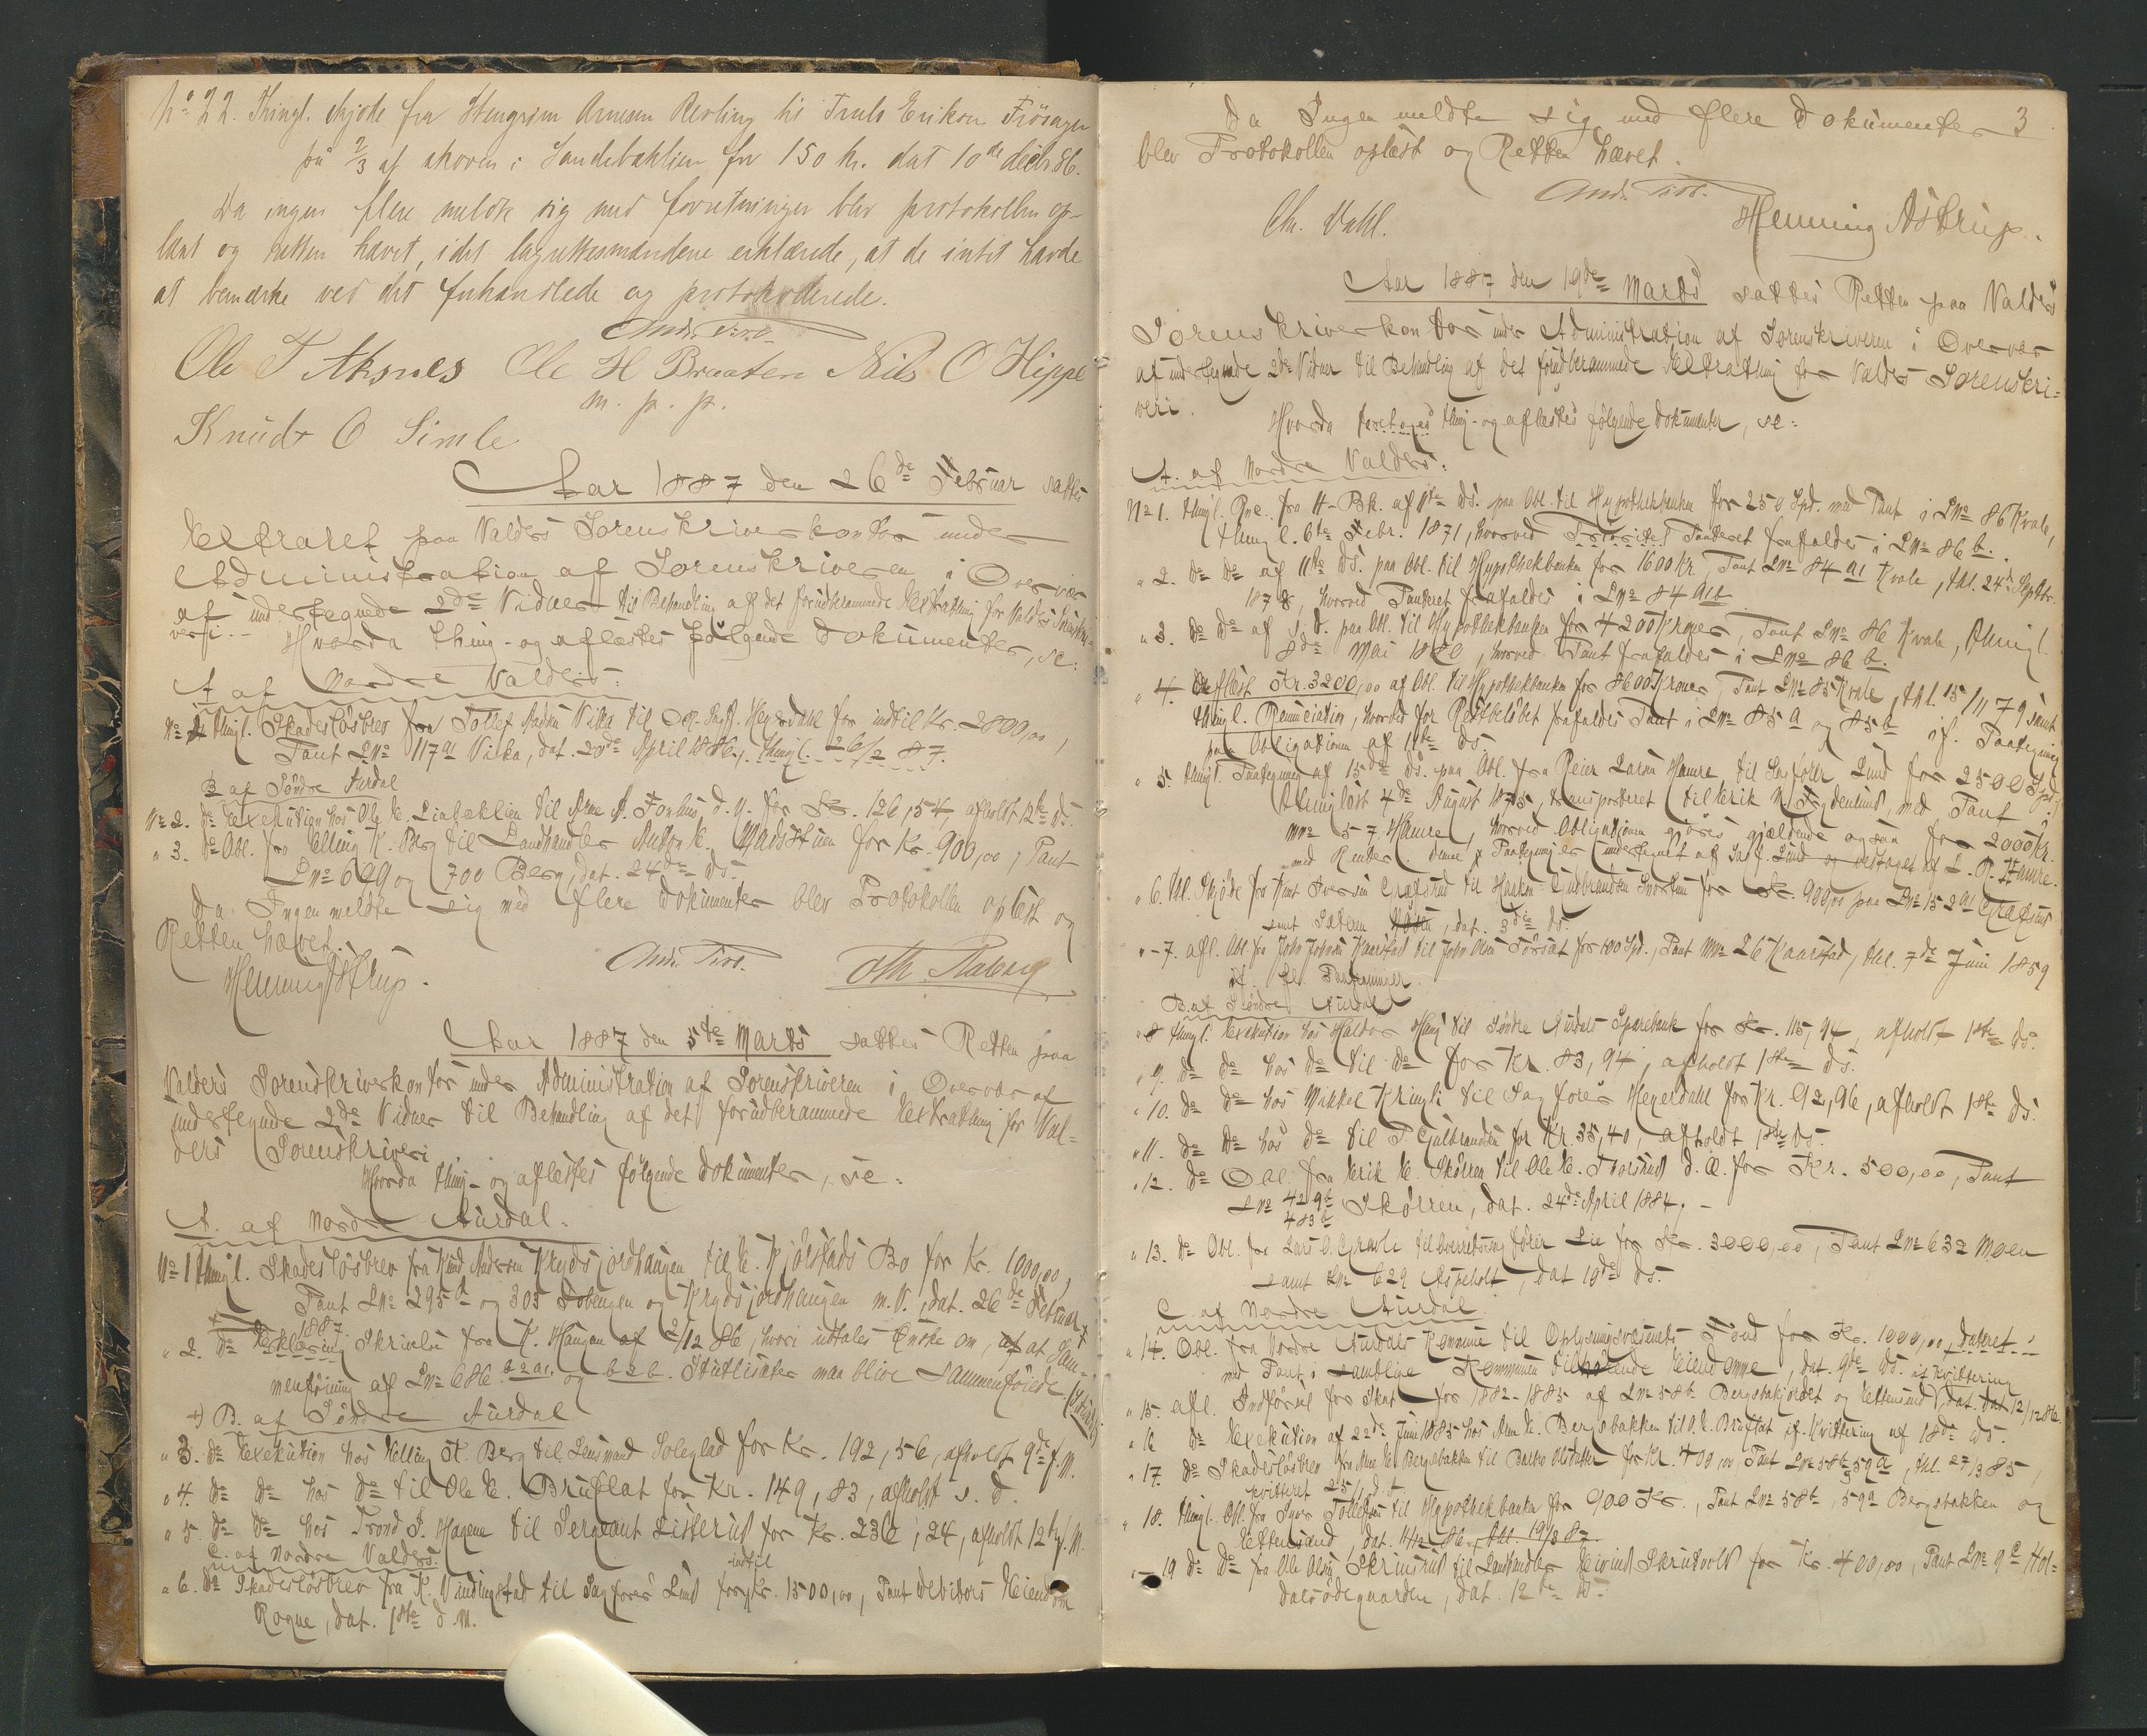 No 22. Thingl. skjøde fra Stengrim Arnesen Revling til Truls Erikson Frösager
på 2/3 af skoven i Sandebaklien for 150 kr. dat 10de decbr. 86.
Da ingen flere meldte sig med forretninger blev protokollen op-
læst og retten hævet, idet lagrettesmændene erklærede, at de intet havde
at bemærke ved det forhandlede og protokollerede.
Ole T Aksnes Ole H Braaten Nils O Hippe
m. p. p.
Knud O Simle
Aar 1887 den 26de Februar sattes
Extraret paa Valders Sorenskriverkontor under
Administration af Sorenskriveren i Overvær
af undertegnede 2de Vidner til Behandling af det forudberammede Extrathing for Valders Sorenskri-
veri. - Hvorda thing- og aflæstes følgende Dokumenter, se:
A af Nordre Valders:
No 1 thingl. Skadesløsbrev fra Tollef Vika til O. Sagf. Heyerdahl for indtil Kr. 2800,00,
Pant Lno 117a1 Vika, dat. 20de April 1886, thingl. 26/2 87.
B af Søndre Aurdal
No 2. do Exekution hos Ole E. Liabaklien til Arne A. Fonhus d. y. for Kr. 126,54, afholdt 12te ds.
" 3. do Obl. fra Elling K. Berg til Landhandler E. Madstuen for Kr. 900,00, Pant
Lno 699 og 700 Berg, dat. 24de ds.
Da Ingen meldte sig med flere Dokumenter blev Protokollen oplæst og
Retten hævet.
Henning Astrup.
Aar 1887 den 5te Marts sattes Retten paa
Valders Sorenskriverkontor under Administration af Sorenskriveren i Overvær af
undertegnede 2de Vidner til Behandling af det forudberammede Extrathing for Val-
ders Sorenskriveri
Hvorda thing- og aflæstes følgende Dokumenter, se:
A. af Nordre Aurdal.
No 1 thingl. Skadesløsbrev fra Knud Andersen Krydsjordhaugen til E. Kjølstads Bo for Kr. 1000,00,
Pant Lno 295b og 303 og Krydsjordhaugen m. V., dat. 26de Februar
1887.
" 2. do Erklæring Skrivelse fra K. Haugen af 2/12 86, hvori udtales Ønske om, at Sam-
menføining af Lno 686 og Stutlisæter maa blive sammenføiede
+) B. af Søndre Aurdal
" 3. do Exekution hos Helling K. Berg til Lensmand Soleglad for Kr. 192,56, afholdt 9de f. M.
" 4. do do hos do til Ole E. Bruflat for Kr. 149,83, afholdt s. d.
" 5. do do hos Trond P. Hagene til Sergeant Listerud for Kr. 236,24, afholdt 12te f. M.
C. af Nordre Valders.
" 6. do Skadesløsbrev fra K. Vindingstad til Sagfører Lund for indtil Kr. 1500,00, Pant Debitors Eiendom
Rogne, dat. 1ste d. M.
Da Ingen meldte sig med flere Dokumenter 3
blev Protokollen oplæst og Retten hævet.
Ch. Vahl. Henning Astrup.
Aar 1887 den 19de Marts sattes Retten paa Valders
Sorenskriverkontor under Administration af Sorenskriveren i Overvær
af undertegnede 2de Vidner til Behandling af det forudberammede Extrathing for Valders Sorenskri-
veri.
Hvorda foretoges thing- og aflæstes følgende Dokumenter, se:
A. af Nordre Valders:
No 1. thingl. Qve. fra H-Bk. af 11te ds. paa Obl. til Hypothekbanken for 250 Spd. med Pant i Lno 86 Kvale,
thingl. 6te Febr. 1871, hvorved Prioritet Panteret frafaldes i Lno 86 b.
" 2. do do af 11te ds. paa Obl. til Hypothekbanken for 1600 Kr., Pant Lno 84 a1 Kvale, thl. 24de Septbr.
1878, hvorved Panteret frafaldes i Lno 84 a1b
" 3. do do af s. d. paa Obl. til Hypothekbanken for 4200 Kroner, Pant Lno 86 Kvale, thingl.
8de Mai 1880, hvorved Pant frafaldes i Lno 86 b.
" 4. Aflæst Kr. 3200,00 af Obl. til Hypothekbanken for 8600 Kroner, Pant Lno 85 Kvale, thl. 15/11 79 samt
thingl. Renunciation, hvorved for Restbeløbet frafaldes Pant i Lno 85 a og 85 b if. Paategning
paa Obligationen af 11te ds
" 5. thingl. Paategning af 15de ds. paa Obl. fra Reier Larsen Hamre til Sagfører Lund for 2500 Spd,
thinglæst 4de August 1875, transporteret til Erik N. Frydenlund, med Pant i
Mno 57 Hamre, hvorved Obligationen gjøres gjældende ogsaa for 2000 Kr.
med Renter. Denne Paategning er undertegnet af Sagf. Lund og vedtaget af L. R. Hamre.
" 6. thl. Skjøde fra Knut Iversen Grøfsrud til Haakon Gudbrandsen for Kr. 900,00 paa Lno 152a1 Grøfsrud
samt Sæteren, dat. 3die ds.
" -7. afl. Obl. fra John Johnsen Kaarstad til John Olsen for 100 Spd., Pant Mno 26 Kaarstad, thl. 7de Juni 1859
if. fl. Paategninger
B. af Søndre Aurdal
" 8 thingl. Exekution hos Haldor Haug til Søndre Aurdals Sparebank for Kr. 115,94, afholdt 1ste ds.
" 9. do do hos do til do for Kr. 83,94, afholdt 1ste ds.
" 10. do do hos Mikkel Kringli til Sagfører Heyerdahl for Kr. 92,96, afholdt 1ste ds.
" 11. do do hos do til P. Gulbrandsen for Kr. 35,40, afholdt 1ste ds.
" 12. do Obl. fra Erik E. Skölien til Ole E. Thorsrud d. æ. for Kr. 500,00, Pant
Lno 429b 483b, dat. 24de April 1884. -
" 13. do Obl. fra Lars O. Gravli til Overretssagfører Lie for Kr. 3000,00, Pant Lno 632 Moen
samt Lno 629 Aspeholt, dat 19de ds.
C. af Nordre Aurdal
" 14. Obl. fra Nordre Aurdals Kommune til Oplysningsvæsenets Fond for Kr. 1000,00, dateret
med Pant i samtlige Kommunen tilhørende Eiendomme, dat. 9de ds. if Kvittering
" 15. afl. Indførsel for Skat for 1882-1885 af Lno 58b Bergsbakjordet og Ettensund, dat. 12/12 86.
" 16 do Exekution af 22de Juni 1885 hos Arne E. Bergsbakken til O. E. Bruflat if. Kvittering af 18de ds.
" 17. do Skadesløsbrev fra Arne E. Bergsbakken til for Kr. 400,00, Pant Lno 58b, 59a, thl. 27/3 85,
kvitteret
" 18. thingl. Obl. fra Iver Tollefsen til Hypothekbanken for 900 Kr., Pant Lno 58b, 59a Bergsbakken og
Ettensund, dat. 11/12 86, thl. 19/3 87.
" 19 do do fra Ole Olsen Skrinsrud til Landhandler Eivind Skrutvold for Kr. 400,00, Pant Lno 9e Hol-
dalsødegaarden, dat. 12te ds.